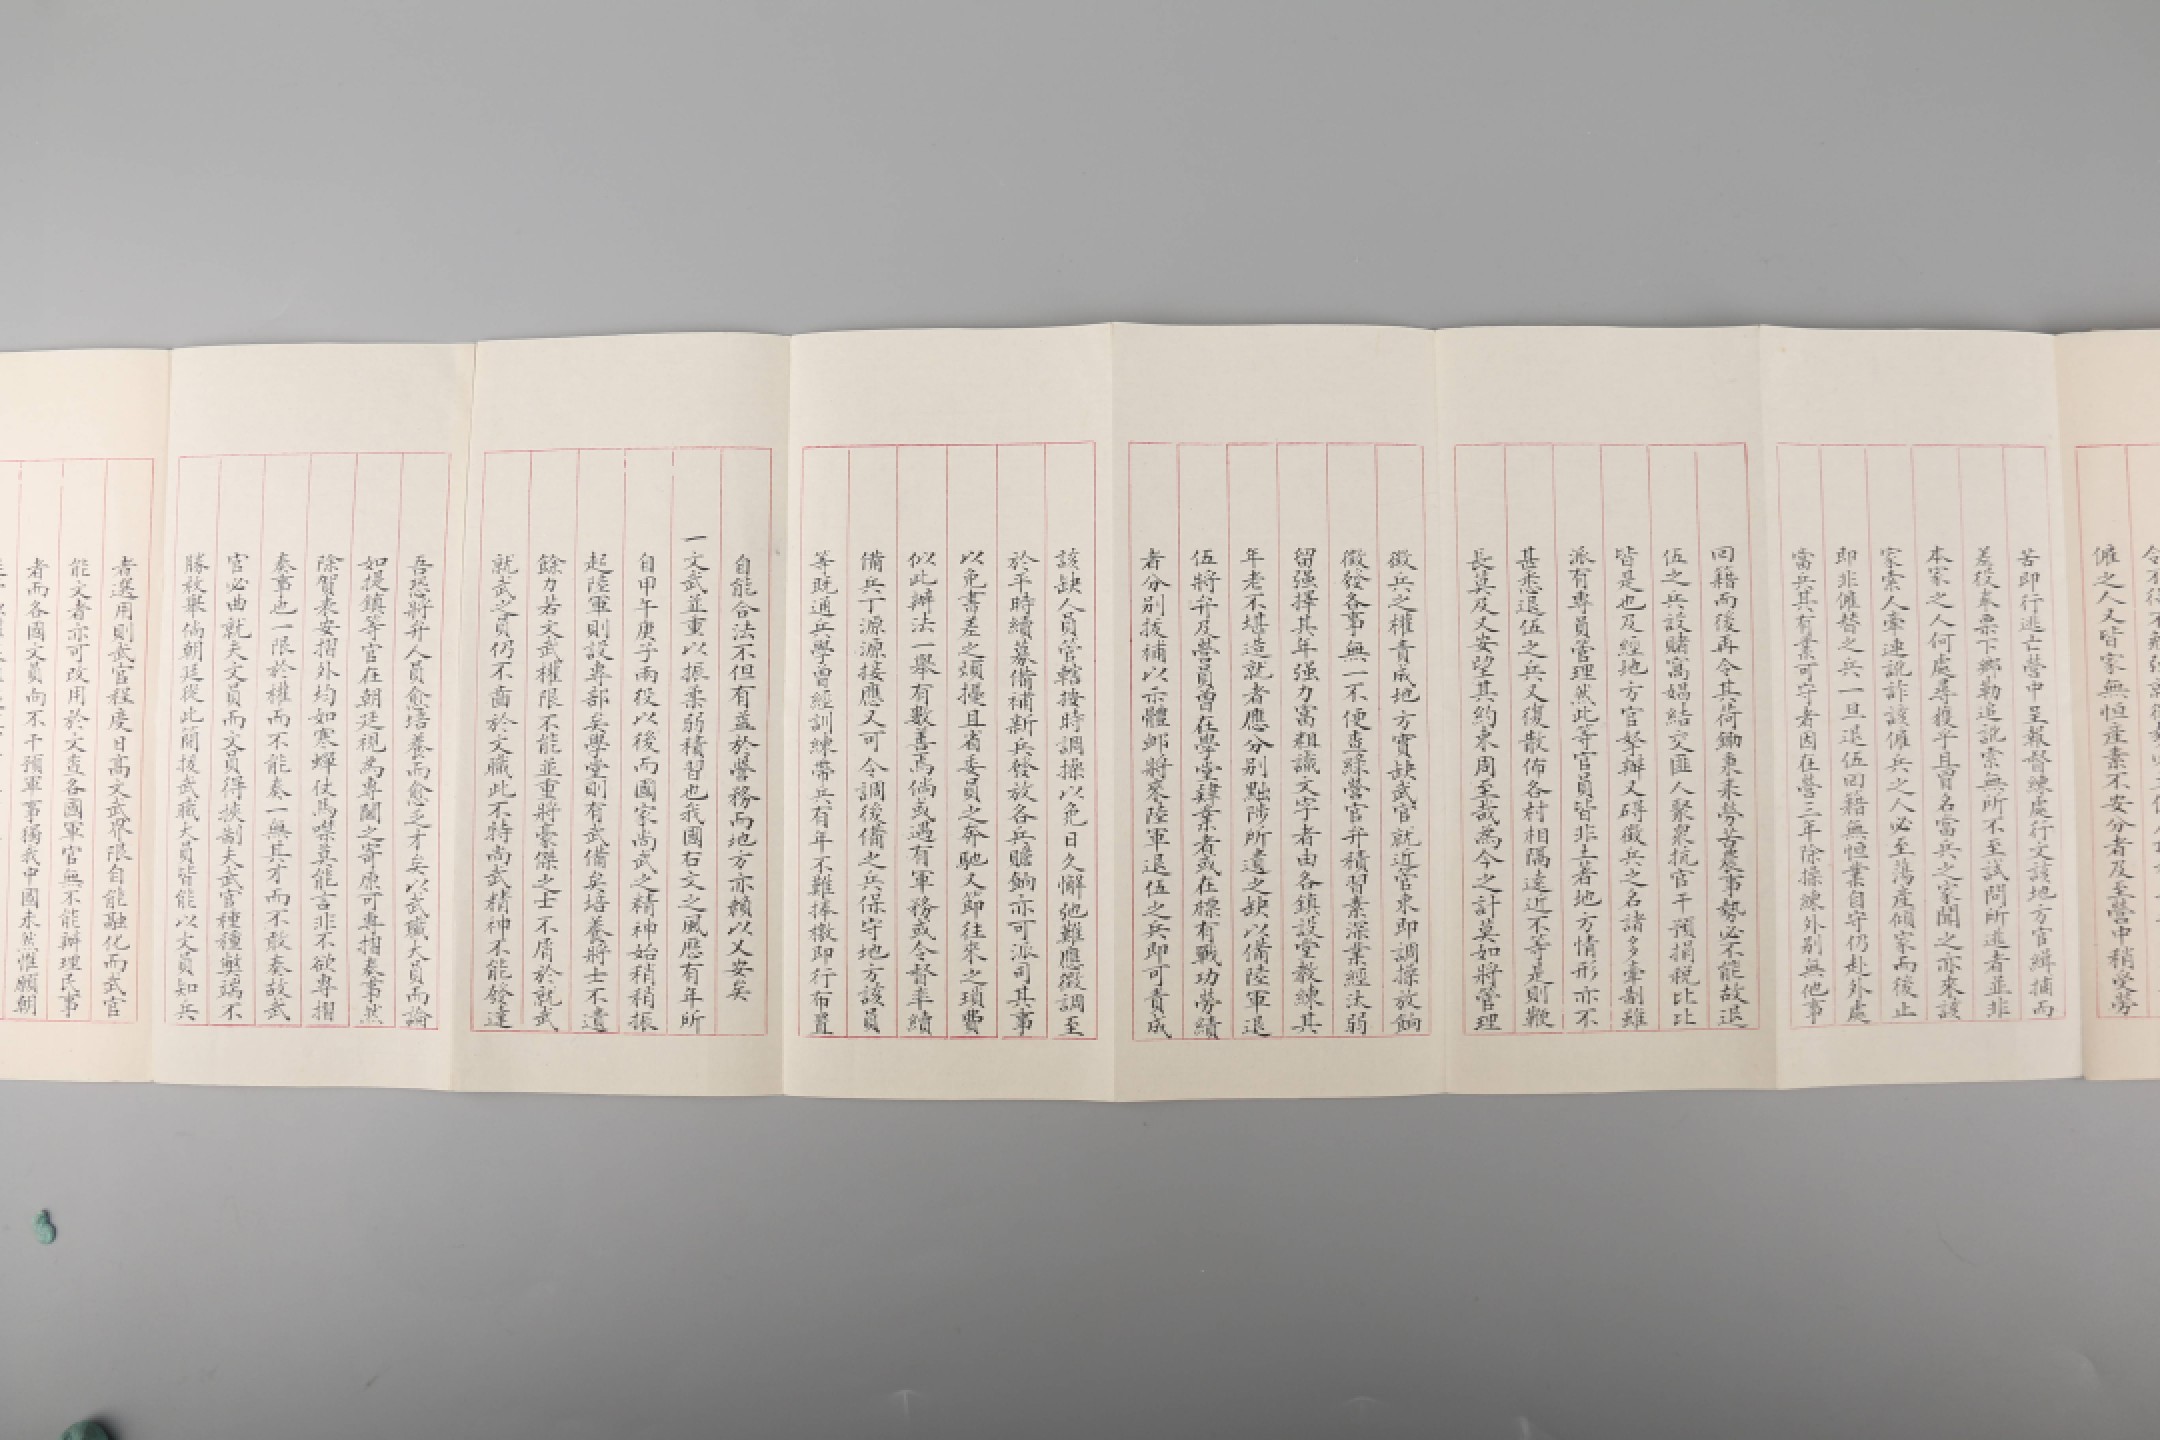 僱之人又皆家無恒產素不安分者及至營中稍受勞
苦即行逃亡營中呈報督練處行文該地方官緝捕而
差役奉票下鄉勒追訛索無所不至試問所逃者並非
本家之人何處尋獲乎且冒名當兵之家聞之亦來該
家索人牽連訛詐該僱兵之人必至蕩產傾家而後止
即非僱替之兵一旦退伍回籍無恒業自守仍赴外處
當兵其有業可守者因在營三年除操練外別無他事
回籍而後再令其荷鋤秉耒勞苦農事勢必不能故退
伍之兵設賭窩娼結交匪人聚眾抗官干預捐稅比比
皆是也及經地方官拏辦又碍徵兵之名諸多牽制雖
派有專員管理然此等官員皆非土著地方情形亦不
甚悉退伍之兵又復散佈各村相隔遠近不等是則鞭
長莫及又安望其約束周至哉為今之計莫如將管理
徵兵之權責成地方實缺武官就近官束即調操放餉
徵發各事無一不便查綠營官弁積習素深業經汰弱
留强擇其年强力富粗識文字者由各鎮設堂教練其
年老不堪造就者應分別黜陟所遺之缺以備陸軍退
伍將弁及營員曾在學堂肄業者或在標有戰功勞績
者分別拔補以示體卹將來陸軍退伍之兵即可責成
該缺人員管轄按時調操以免日久懈弛難應徵調至
於平時續募備補新兵發放各兵贍餉亦可派司其事
以免書差之煩擾且省委員之奔馳又節往來之瑣費
似此辦法一舉有數善焉倘或遇有軍務或令督率續
備兵丁源源接應又可令調後備之兵保守地方該員
等既通兵學曾經訓練帶兵有年不難捧檄即行布置
自能合法不但有益於營務而地方亦賴以乂安矣
一文武並重以振柔弱積習也我國右文之風應有年所
自甲午庚子兩役以後而國家尚武之精神始稍稍振
起陸軍則設專部矣學堂則有武備矣培養將士不遺
餘力若文武權限不能並重將豪傑之士不屑於就武
就武之員仍不齒於文職此不特尚武精神不能發達
吾恐將弁人員愈培養而愈乏才矣以武職大員而論
如提鎮等官在朝廷視為專閫之寄原可專摺奏事然
除賀表安摺外均如寒蟬仗馬噤莫能言非不欲專摺
奏事也一限於權而不能奏一無其才而不敢奏故武
官必曲就夫文員而文員得挾制夫武官種種弊端不
勝枚舉倘朝廷從此簡拔武職大員皆能以文員知兵
者選用則武官程度日高文武界限自能融化而武官
能文者亦可改用於文查各國軍官無不能辦理民事
者而各國文員向不干預軍事獨我中國未然惟願朝